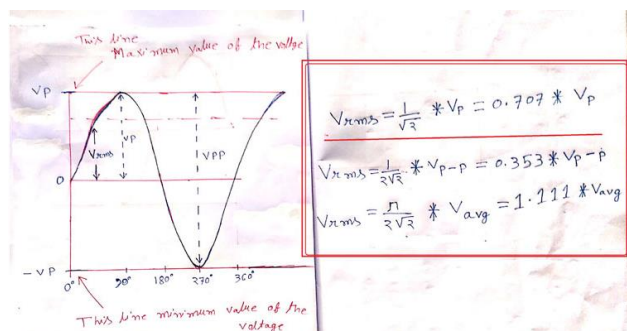 This line
Maximum value of the voltge
VP
Vrms
VP
VPP
0
-VP
0° 90° 180° 270° 360°
This line minimum value of the
voltage
Vrms = 1/√2 * Vp = 0.707 * Vp
Vrms = 1/2√2 * Vp-p = 0.353 * Vp-p
Vrms = π/2√2 * Vavg = 1.111 * Vavg